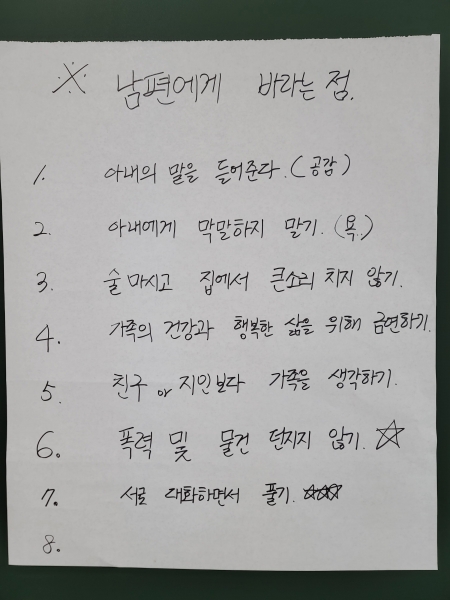 ※ 남편에게 바라는 점.
1. 아내의 말을 들어준다. (공감)
2. 아내에게 막말하지 말기. (욕.)
3. 술 마시고 집에서 큰소리 치지 않기.
4. 가족의 건강과 행복한 삶을 위해 금연하기.
5. 친구 or 지인보다 가족을 생각하기.
6. 폭력 및 물건 던지지 않기. ☆
7. 서로 대화하면서 풀기. ☆☆☆
8.